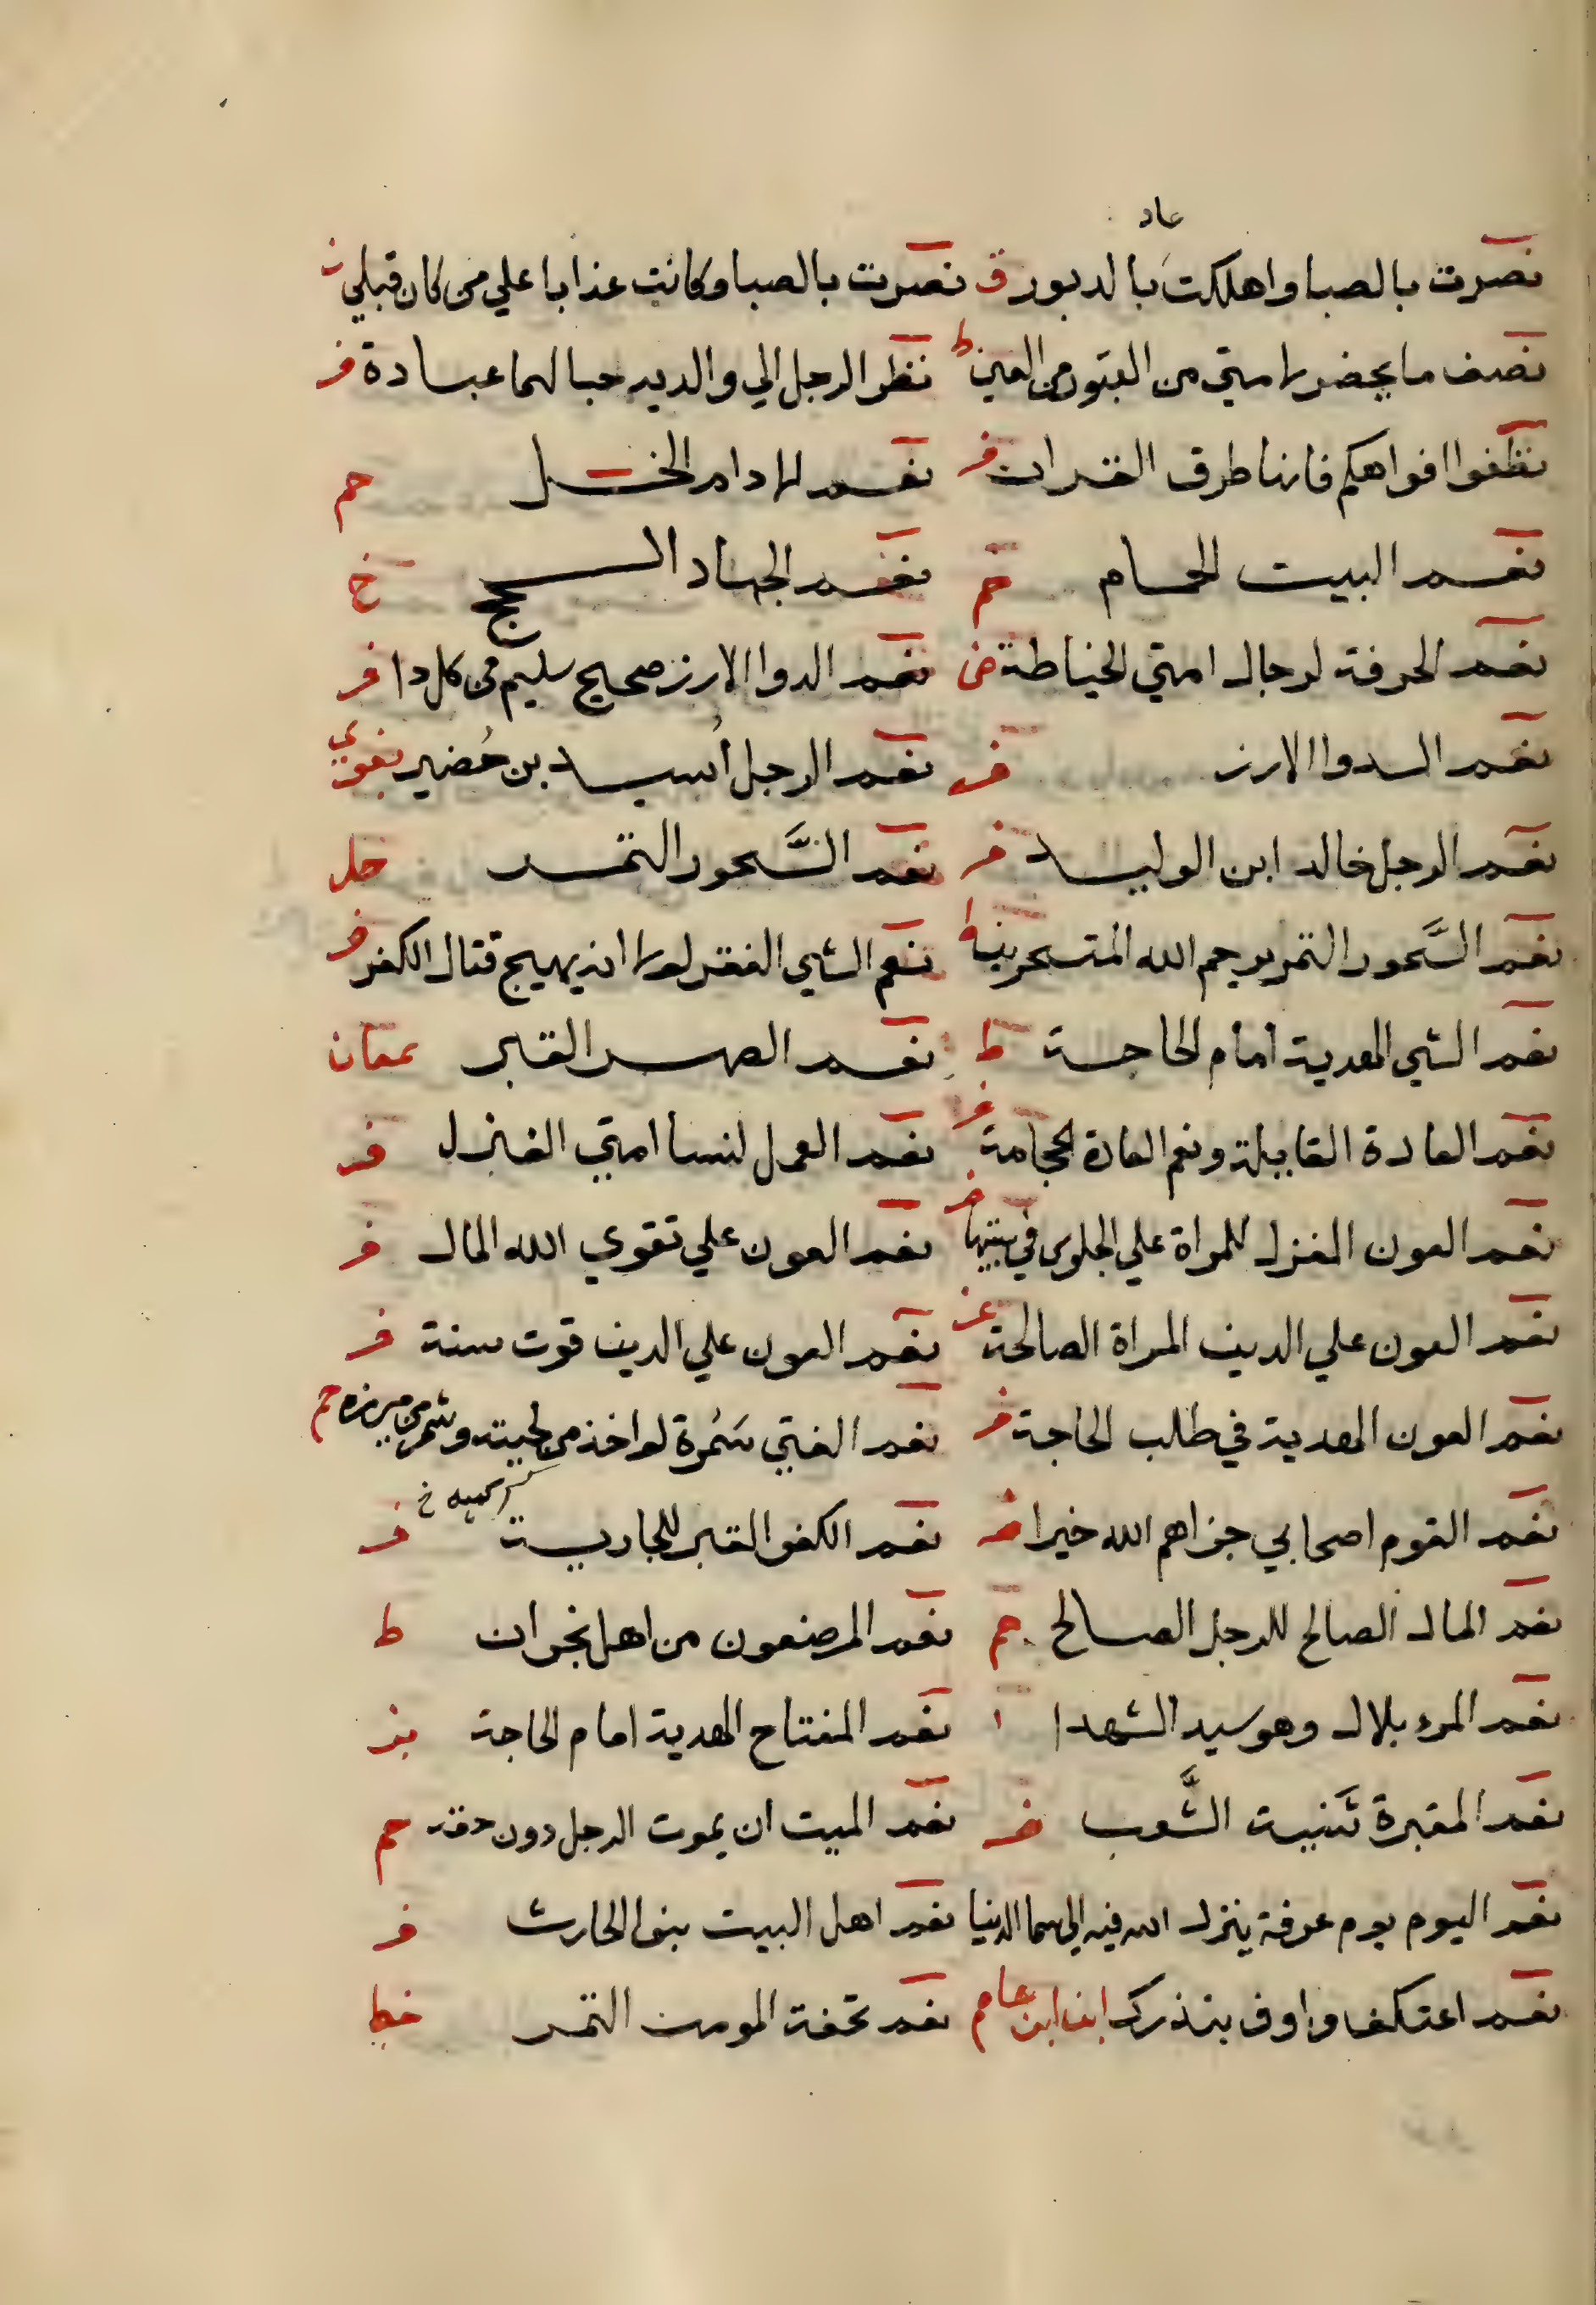 عاد
نصرت بالصبا واهلكت بالدبور ق نصرت بالصبا وكانت عذابا علي من كان قبلي
نصف ما يحفر لامتي من القبور من العين ط نظر الرجل الي والديه حبا لهما عبادة فر
نظفوا افواهكم فانها طرق القران فر نعم الادام الخل حم
نعم البيت الحمام حم نعم الجهاد الحج خ
نعم الحرفة لرجال امتي الخياطة فر نعم الدوا الارز صحيح سليم من كل دا فر
نعم الدوا الارز فر نعم الرجل أسيد بن حُضير بغوي
نعم الرجل خالد ابن الوليد فر نعم السَّحور التمر حل
نعم السَّحور التمر يرحم الله المتسحرين ط نعم الشي الفقر لولا انه يهيج قتال الكفر فر
نعم الشي الهدية امام الحاجة ط نعم الصهر القبر سمعان
نعم العادة القايلة ونعم العادة الحجامة فر نعم العمل لنسا امتي الغزل فر
نعم العون المغزل للمراة علي الجلوس في بيتها فر نعم العون علي تقوي الله المال فر
نعم العون علي الدين المراة الصالحة عز نعم العون علي الدين قوت سنة فر
نعم العون الهدية في طلب الحاجة فر نعم الفتي سَمُرة لو اخذ من لحيته وشمر من ميزره حم
نعم القوم اصحابي جزاهم الله خيرا نعم الكفو القبر للجارية فر
نعم المال الصالح للرجل الصالح حم نعم المرضعون من اهل نجران ط
نعم المرء بلال وهو سيد الشهدا نعم المفتاح الهدية امام الحاجة بز
نعم المقبرة ثنية الشَّعب فر نعم الميت ان يموت الرجل دون حقه حم
نعم اليوم يوم عرفة ينزل الله فيه الي سما الدنيا نعم اهل البيت بنو الحارث فر
نعم اعتكف واوف بنذرك ابن عاصم نعم تحفة المومن التمر خط